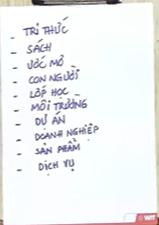 - TRI THỨC
- SÁCH
- ƯỚC MƠ
- CON NGƯỜI
- LỚP HỌC
- MÔI TRƯỜNG
- DỰ ÁN
- DOANH NGHIỆP
- SẢN PHẨM
- DỊCH VỤ